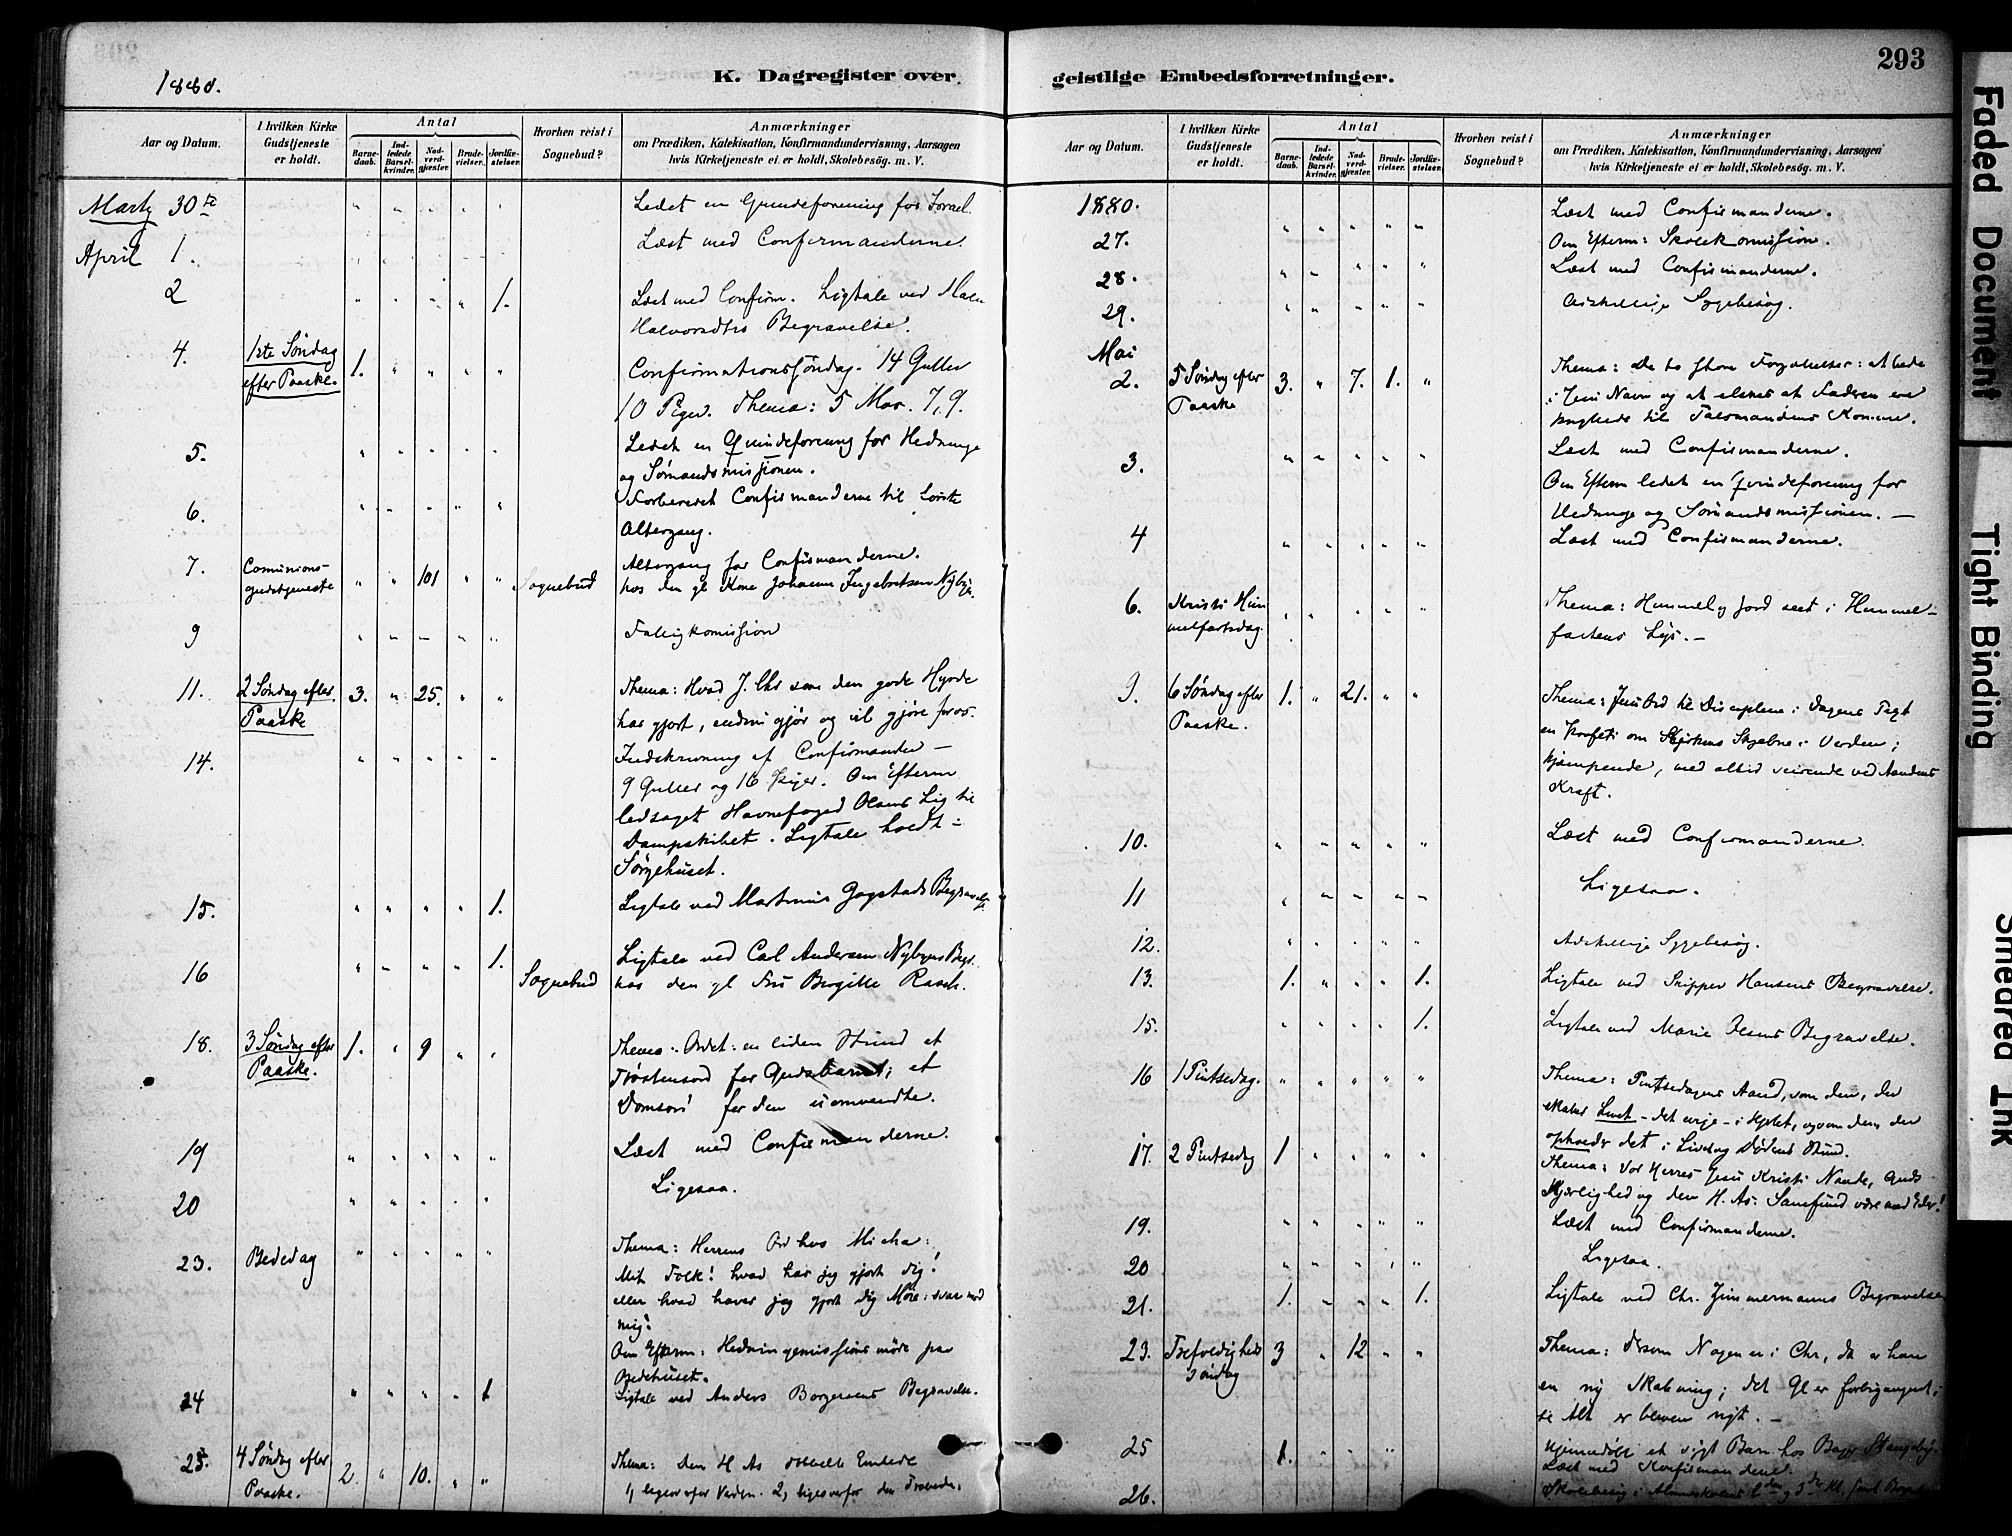 293
1880.
K. Dagregister over
geistlige Embedsforretninger.
Aar og Datum.
I hvilken Kirke Gudstjeneste er holdt.
Antal
Barnedaab.
Indledede Barselkvinder.
Nadverdgjæster.
Brudevielser.
Jordfæstelser.
Hvorhen reist i Sognebud?
Anmærkninger
om Prædiken, Katekisation, Konfirmandundervisning, Aarsagen
hvis Kirketjeneste ei er holdt, Skolebesög. m. V.
Marts 30te Ledet en Qvindeforening for Israel.
April 1. Læst med Confirmanderne.
2 " " " " 1. Læst med Confirm. Ligtale ved
Halvorsdtrs Begravelse.
4. 1ste Søndag 1. " " " " Confirmationssøndag. 14 Gutter
efter Paaske. 10 Piger. Thema: 5 Mos. 7,9.
5. Ledet en Qvindeforening for Hedninge
og Sømandsmissionen.
6. Forberedt Confirmanderne til første
Altergang.
7. Communions- " " 101 " " Sognebud Altergang for Confirmanderne.
gudstjeneste hos den gl Kone Johanne Ingebretsen Nybye.
9 Fattigkomission
11. 2 Søndag efter 3. " 25. " " Thema: Hvad J. Chr som den gode Hyrde
Paaske har gjort, endnu gjør og vil gjøre for os.
14. Indskrivning af Confirmander –
9 Gutter og 16 Piger. Om Efterm
ledsaget Havnefoged Olsens Lig til
Dampskibet. Ligtale holdt i
Sørgehuset.
15. " " " " 1. Ligtale ved Martinus Gogstads Begravelse.
16 " " " " 1. Ligtale ved Carl Andersen Nybyes Begr.
Sognebud hos den gl Fru Birgitte Rasch.
18. 3 Søndag efter 1. " 9 " " Thema: Ordet: en liden Stund et
Paaske. Trøstensord for Gudsbarnet; et
Domsord for den uomvendte.
19 Læst med Confirmanderne.
20 Ligesaa.
23. Bededag Thema: Herrens Ord hos Micha:
Mit Folk! hvad har jeg gjort dig!
eller hvad haver jeg gjort dig Møie: svar mod
mig!
Om Efterm: Hedningemissionsmøde paa
Bedehuset.
24 " " " " 1 Ligtale ved Anders Borgersens Begravelse.
25. 4 Søndag efter 2. " 10. " " Thema: Den H As Embede
Paaske. 1, ligeoverfor Verden. 2, ligeoverfor den Troende.
Aar og Datum.
I hvilken Kirke Gudstjeneste er holdt.
Antal
Barnedaab.
Indledede Barselkvinder.
Nadverdgjæster.
Brudevielser.
Jordfæstelser.
Hvorhen reist i Sognebud?
Anmærkninger
om Prædiken, Katekisation, Konfirmandundervisning, Aarsagen
hvis Kirketjeneste ei er holdt, Skolebesög. m. V.
1880.
27. Læst med Confirmanderne.
Om Efterm: Skolekomission.
28. Læst med Confirmanderne.
29. Adskillige Sygebesøg.
Mai
2. 5 Søndag efter 3. " 7. 1. " Thema: De to store Forjættelser: at bede
Paaske i Jesu Navn og at elskes af Faderen ere
knyttede til Talsmandens Komme.
3. Læst med Confirmanderne.
Om Efterm ledet en Qvindeforening for
Hedninge og Sømandsmissionen. –
4 Læst med Confirmanderne.
6. Kristi Him Thema: Himmel og Jord seet i Himmel-
melfartsdag. fartens Lys. –
9. 6 Søndag efter 1. " 21. " " Thema: Jesu Ord til Disciplene i Dagens Text
Paaske. en Profeti om Kirkens Skjæbne i Verden;
kjæmpende, med altid seirende ved Aandens
Kraft.
10. Læst med Confirmanderne.
11 Ligesaa.
12. Adskillige Sygebesøg.
13. 1. " " " 1. Ligtale ved Skipper Hansens Begravelse.
15. " " " " 1. Ligtale ved Marie Olsens Begravelse.
16 1 Pintsedag. Thema: Pintsedagens Aand, som den, der
skaber Livet – det evige – i Hjertet, og som den der
opholder det i Livet og Dødens Stund.
17. 2 Pintsedag 1 " " " " Thema: Vor Herres Jesu Kristi Naade, Guds
Kjærlighed og den H. As. Samfund være med Eder!
19. Læst med Confirmanderne.
20 Ligesaa.
21. 1. " " " 1. Ligtale ved Chr. Zimmermanns Begravelse
23. Trefoldigheds 3 " 12 " " Thema: Dersom Nogen er i Chr, da er han
Søndag en ny Skabning; det Gl er forbigangent;
se Alt er bleven nyt. –
25 1. Hjemmedøbt et sygt Barn hos
Læst med Konfirmanderne.
26. Skolebesøg i Almueskolens 2den og 3die Kl.
Faded Document
Tight Binding
Smeared Ink